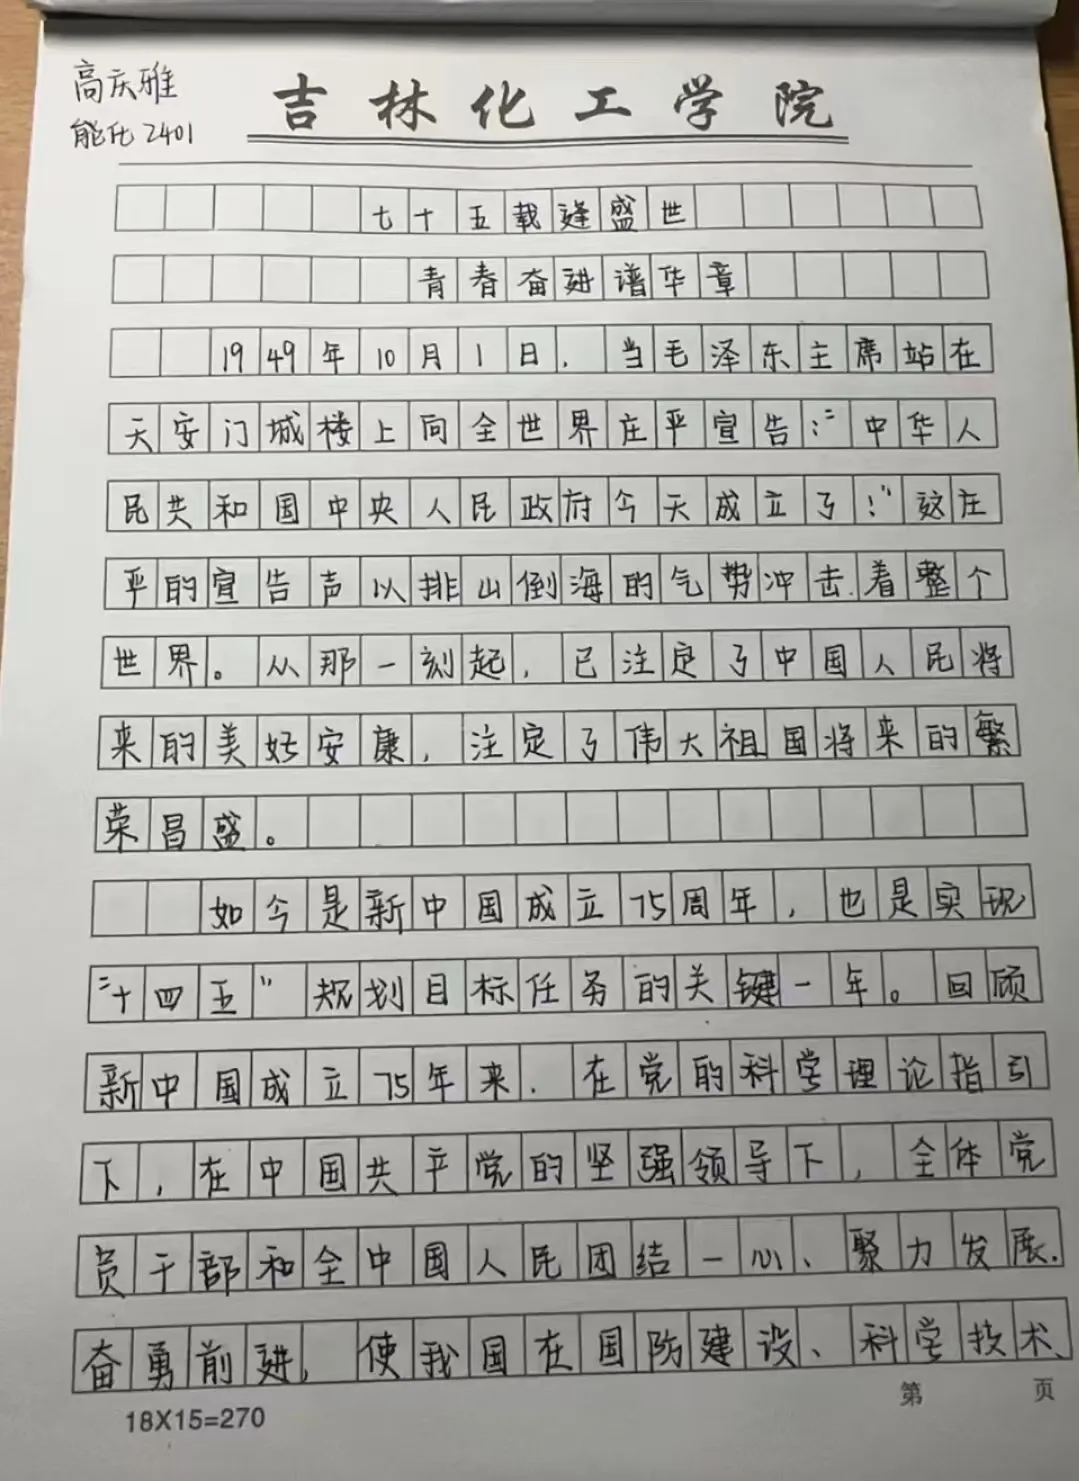 高庆雅
能化2401
吉林化工学院
七十五载逢盛世
青春奋进谱华章
1949年10月1日，当毛泽东主席站在
天安门城楼上向全世界庄严宣告：“中华人
民共和国中央人民政府今天成立了！”这庄
严的宣告声以排山倒海的气势冲击着整个
世界。从那一刻起，已注定了中国人民将
来的美好安康，注定了伟大祖国将来的繁
荣昌盛。
如今是新中国成立75周年，也是实现
“十四五”规划目标任务的关键一年。回顾
新中国成立75年来，在党的科学理论指引
下，在中国共产党的坚强领导下，全体党
员干部和全中国人民团结一心、聚力发展，
奋勇前进，使我国在国防建设、科学技术、
18X15=270
第 页